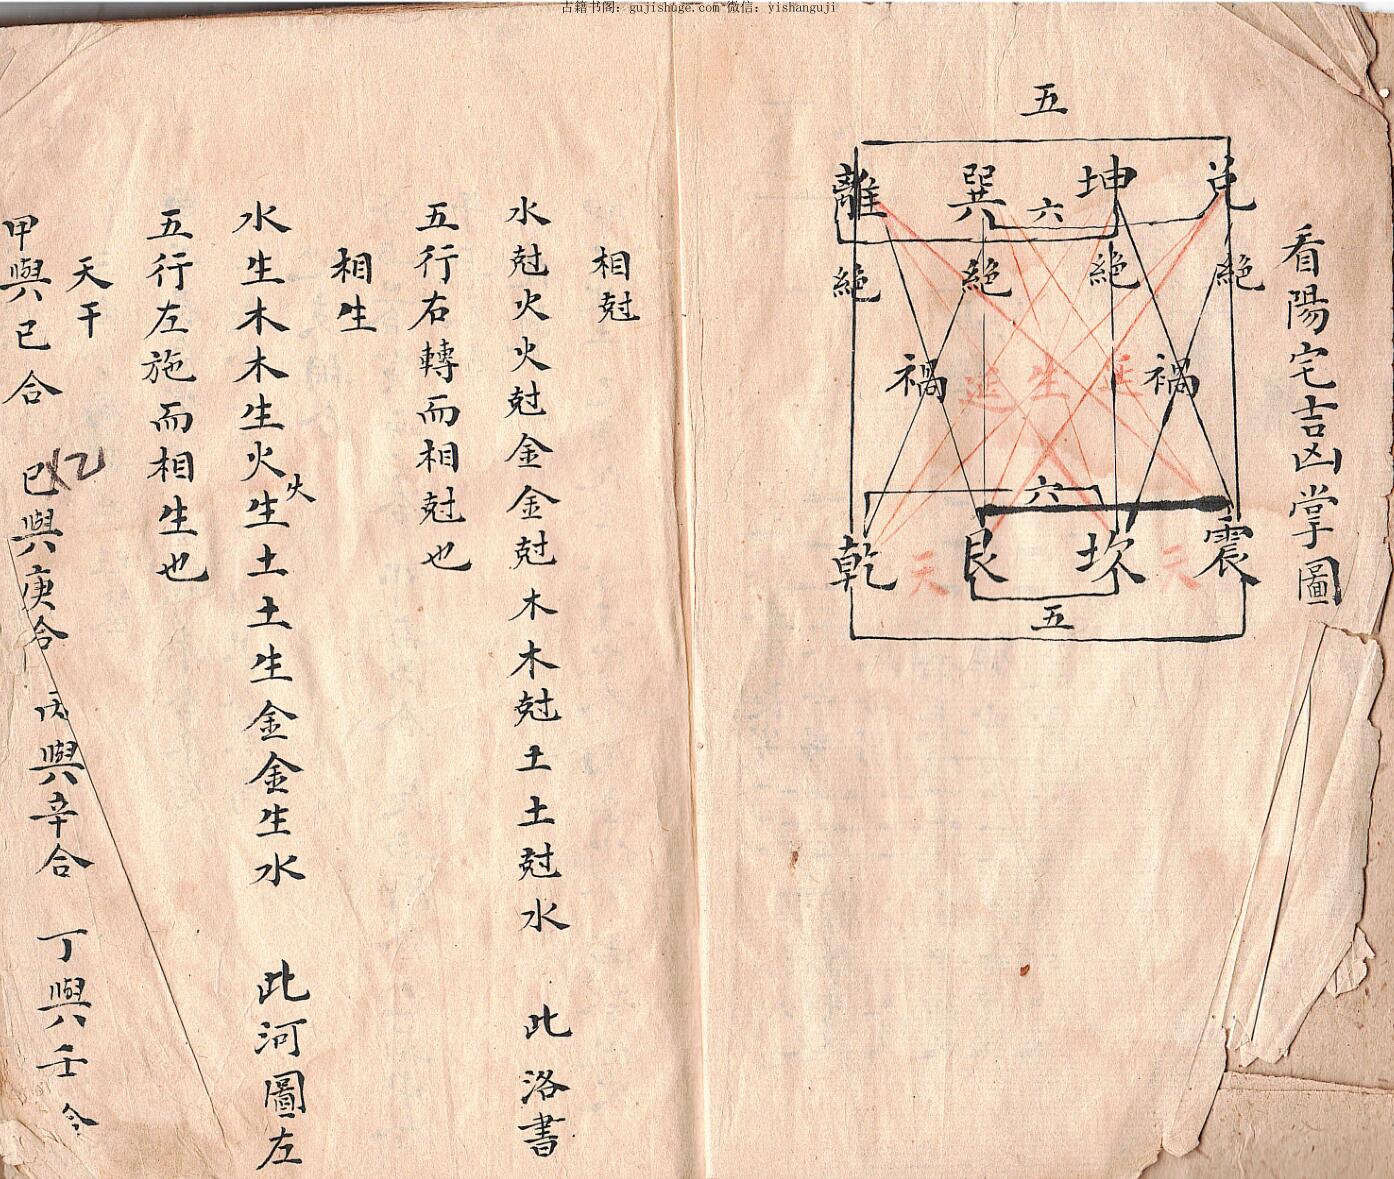 古籍书阁：gujishuge.com 微信：yishanguji
看陽宅吉凶掌圖
五
離 巽 坤 兌
六
絕 絕 絕 絕
禍 延 生 延 禍
六
乾 天 艮 坎 天 震
五
相尅
水尅火火尅金金尅木木尅土土尅水 此洛書
五行右轉而相尅也
相生
水生木木生火火生土土生金金生水 此河圖左
五行左施而相生也
天干
甲與已合 乙與庚合 丙與辛合 丁與壬合